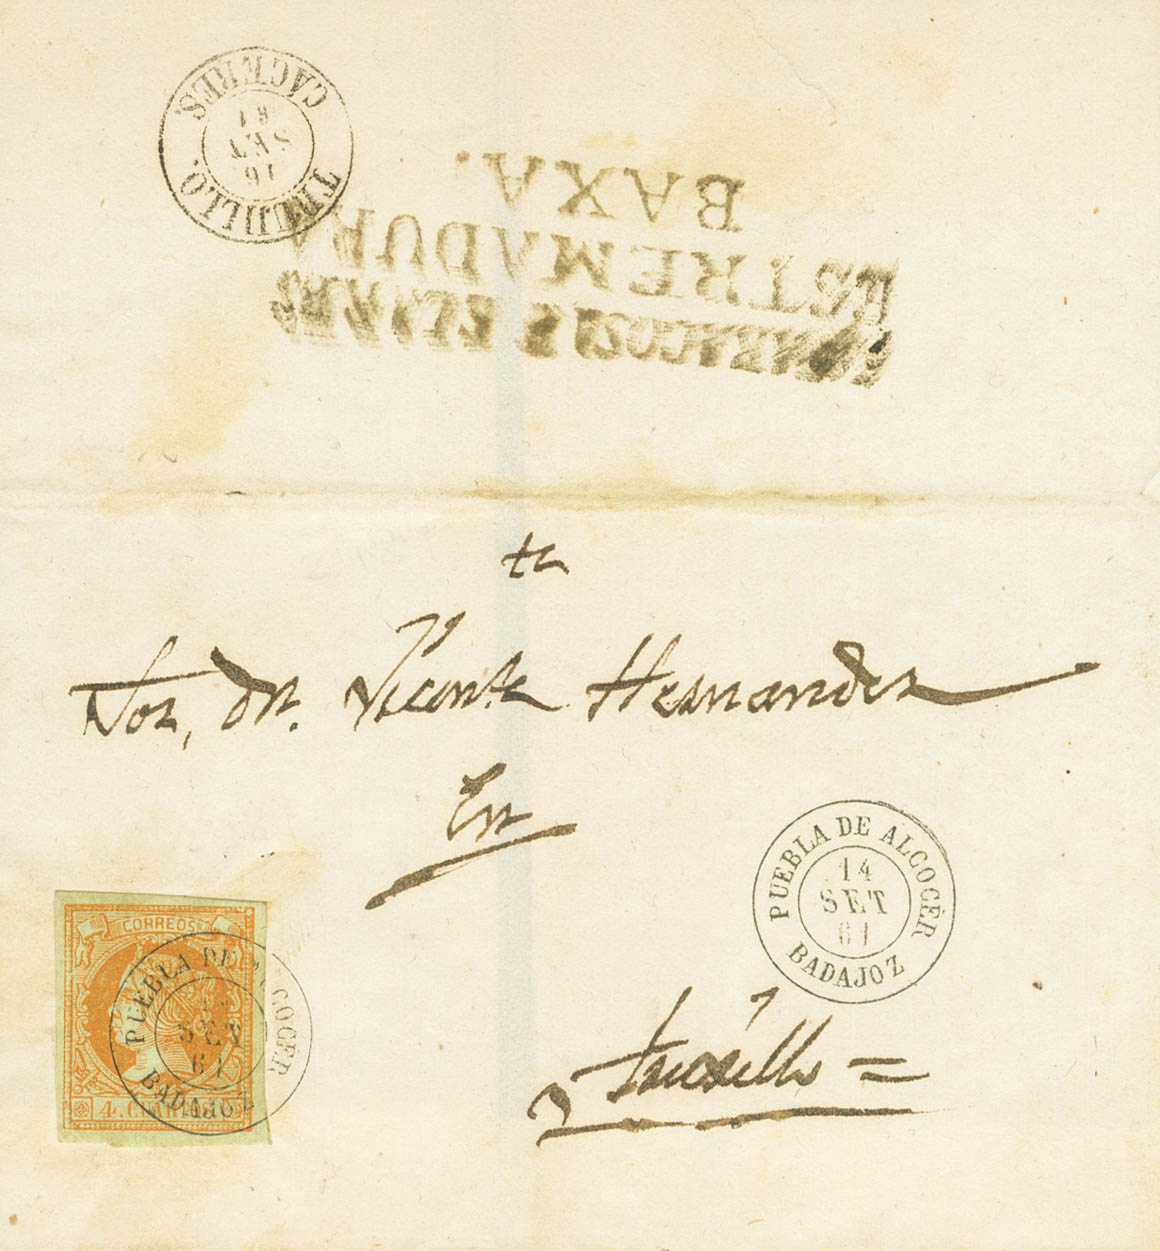 TRUJILLO.
CACERES.
16
SET
61
BAXA.
ESTREMADURA
te
Sor, Dn. Vicente Hernandez
En
PUEBLA DE ALGOCÉR
14
SET
61
BADAJOZ
CORREOS
4 Cs.
PUEBLA DE ALGOCÉR
SET
61
BADAJOZ
Truxillo =